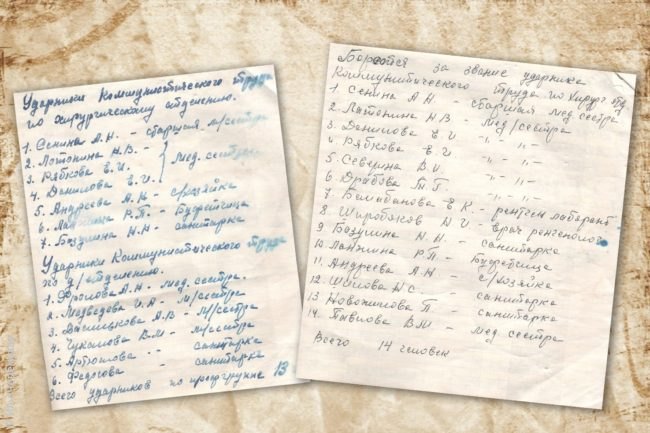 Ударники Коммунистического труда
по хирургическому отделению.
1. Сенина А.Н. - старшая м/сестра
2. Латонина Н.В. -
3. Рябкова Е.И.
4. Данилова Е.И.
мед. сестры
5. Андреева А.Н - с/хозяйка
6. Ланжина Р.П. - Буфетчица
7. Базушна Н.Н - санитарка
Ударники Коммунистического труда
по /отделению.
1. Фролова А.Н. мед. сестра.
2. Медведева И.Н - м/сестра
3. А.В - м/сестра
4. Чукалова В.М - м/сестра
5. Артюхова - санитарка
6. Федотова - санитарка
Всего ударников по профгруппе 13
Борется за звание ударника
Коммунистического труда по Хирург отд
1. Сенина А Н. - старшая мед сестра
2. Латонина Н В - мед/сестра
3. Данилова Е И -„-„-
4. Рябкова Е.И -„-„-
5. Северина В.И. -„-„-
6. Драбова Т.Г. -„-„-
7. Е К. - рентген лаборант
8. Широбоков И И - врач ренгенолог
9 Базушна Н Н. - санитарка
10 Ланжина Р П. - Буфетчица
11. Андреева А Н - с/хозяйка
12. Шилова Н С. - санитарка
13 Новожилова П. - санитарка
14. Павлова В М - мед сестра
Всего 14 человек